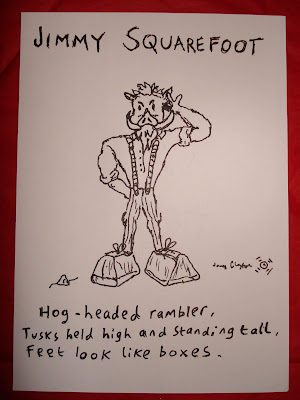 JIMMY SQUAREFOOT
Hog-headed rambler,
Tusks held high and standing tall,
Feet look like boxes.